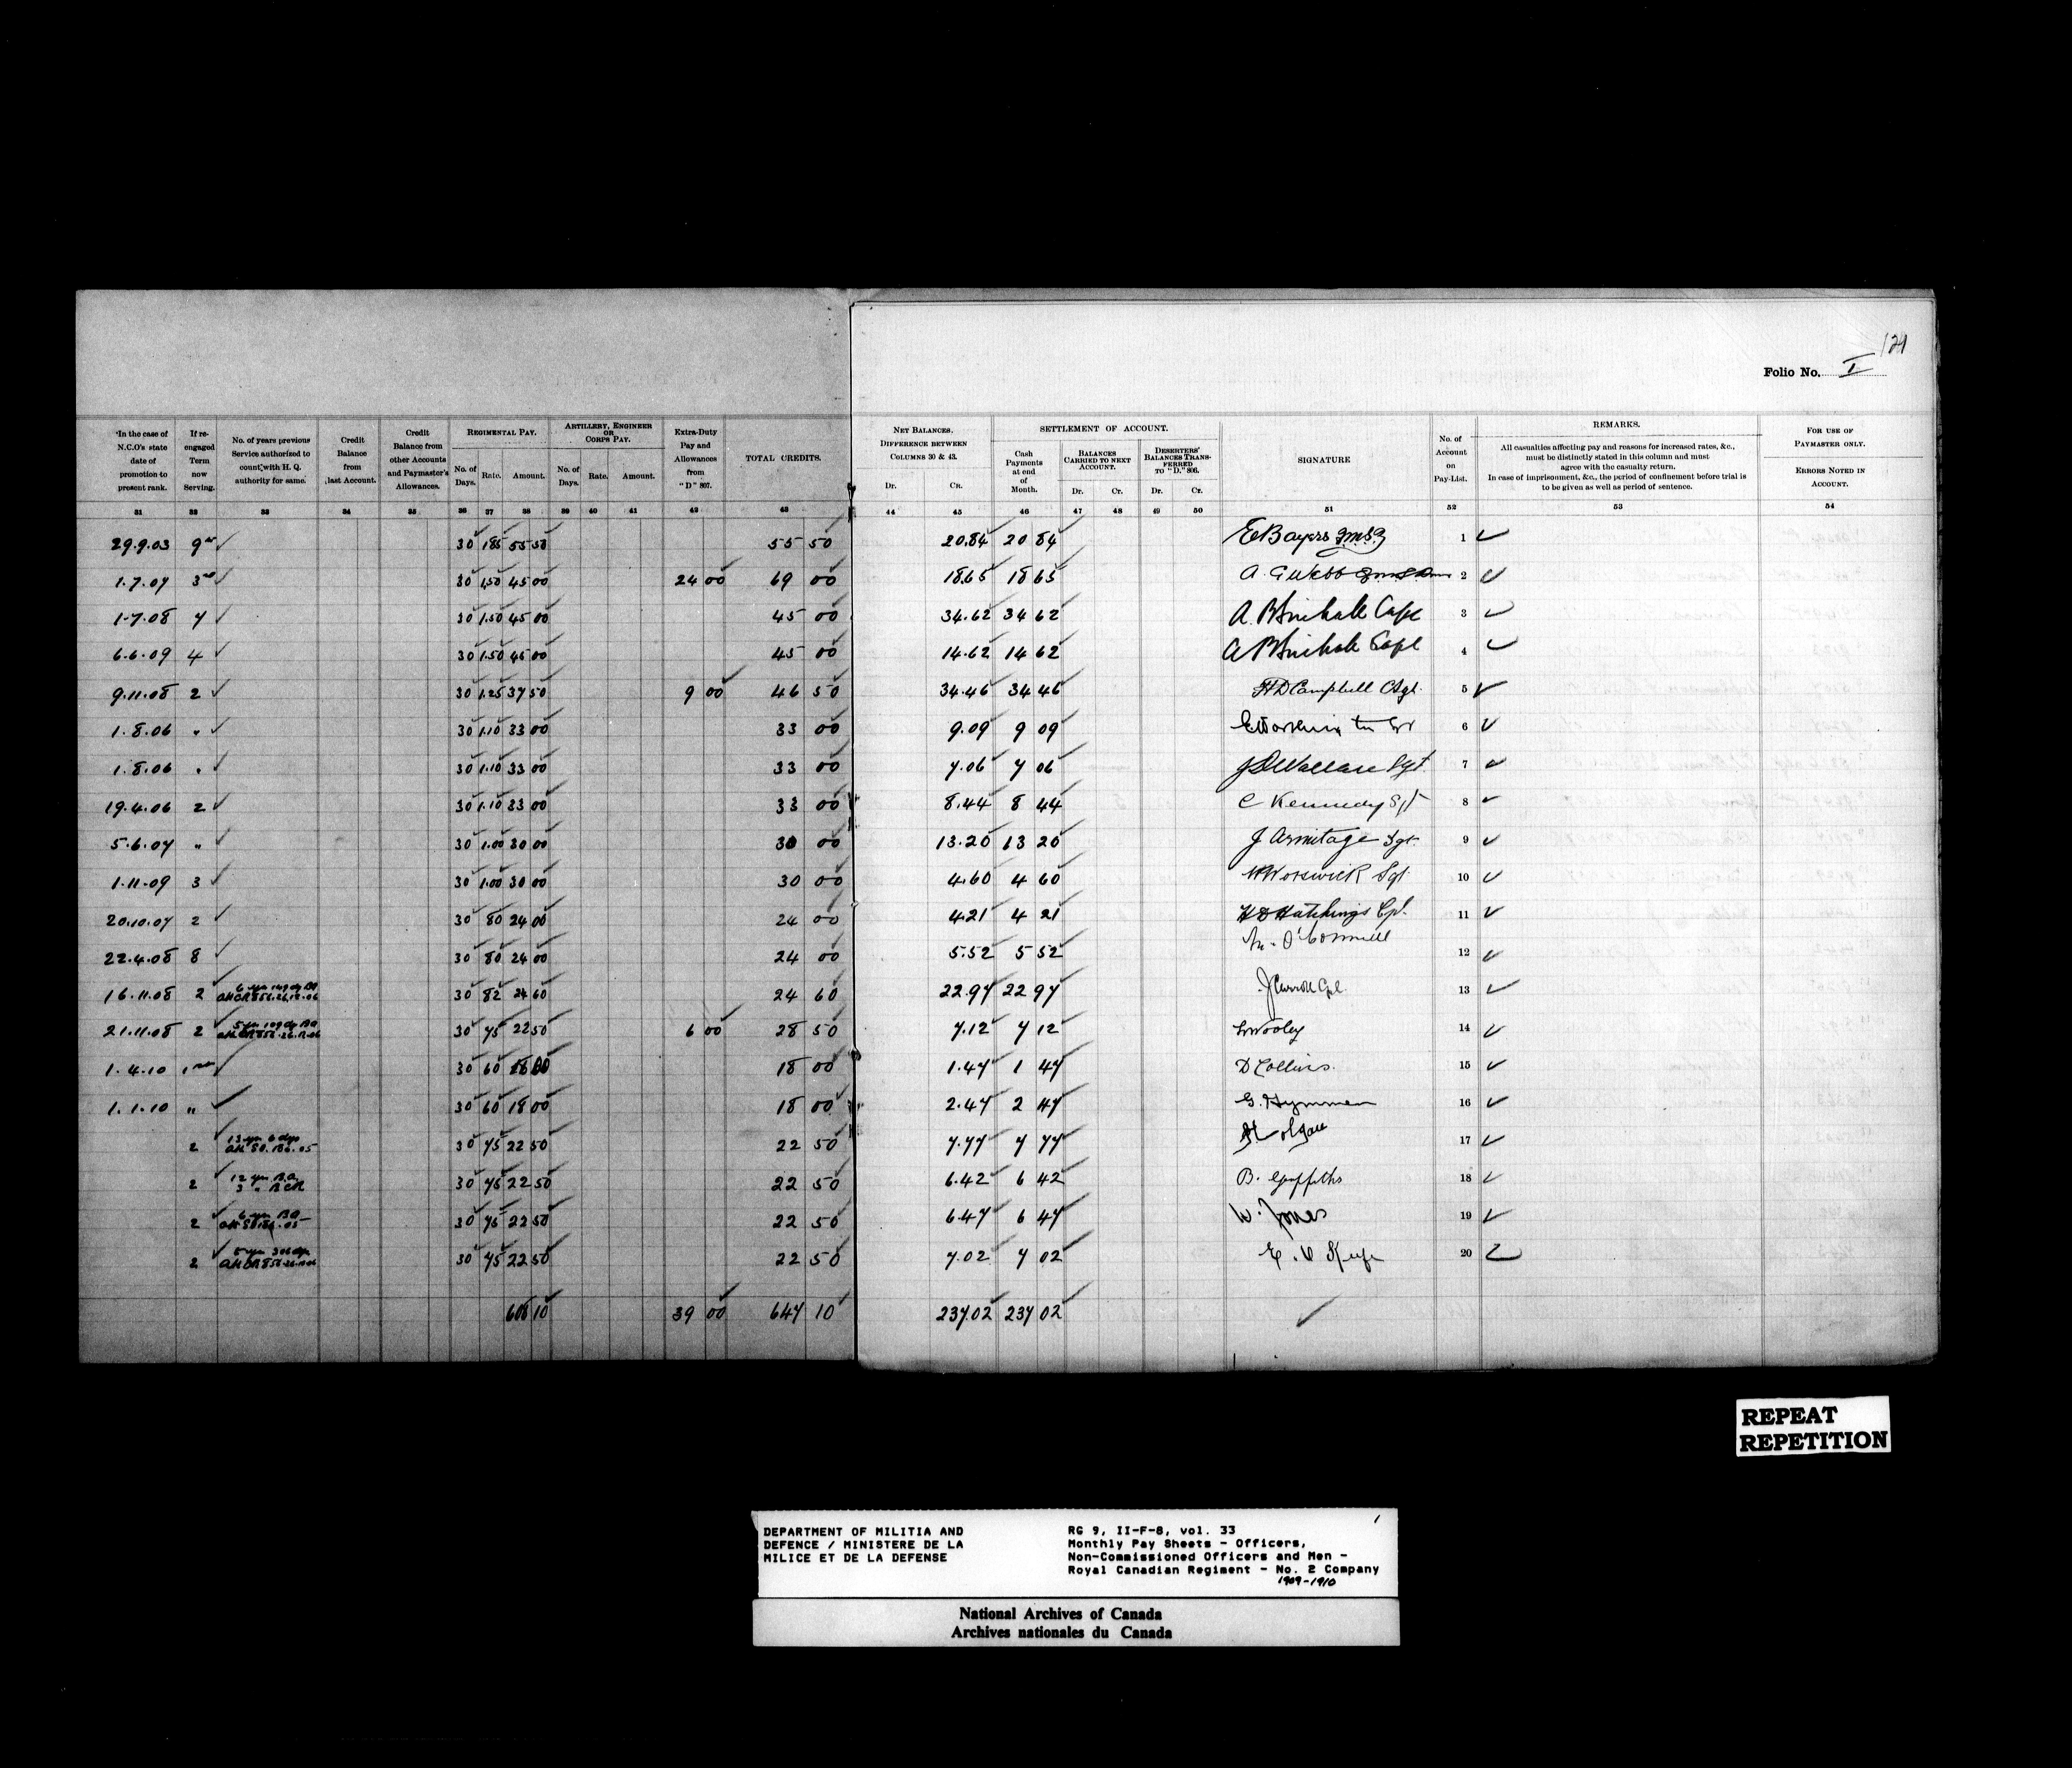 124
Folio No. I
*In the case of N.C.O's state date of promotion to present rank.
If re-engaged Term now Serving.
No. of years previous Service authorized to count, with H. Q. authority for same.
Credit Balance from last Account.
Credit Balance from other Accounts and Paymaster's Allowances.
REGIMENTAL PAY.
No. of Days. Rate. Amount.
ARTILLERY, ENGINEER OR CORPS PAY.
No. of Days. Rate. Amount.
Extra-Duty Pay and Allowances from "D" 807.
TOTAL CREDITS.
NET BALANCES, DIFFERENCE BETWEEN COLUMNS 30 & 43.
Dr. Cr.
SETTLEMENT OF ACCOUNT.
Cash Payments at end of Month.
BALANCES CARRIED TO NEXT ACCOUNT.
Dr. Cr.
DESERTERS' BALANCES TRANSFERRED TO "D." 806.
Dr. Cr.
SIGNATURE
No. of Account on Pay-List.
REMARKS.
All casualties affecting pay and reasons for increased rates, &c., must be distinctly stated in this column and must agree with the casualty return.
In case of imprisonment, &c., the period of confinement before trial is to be given as well as period of sentence.
FOR USE OF PAYMASTER ONLY.
ERRORS NOTED IN ACCOUNT.
31 32 33 34 35 36 37 38 39 40 41 42 43 44 45 46 47 48 49 50 51 52 53 54
29.9.03 9 30 1.85 55 50 55 50 20.84 20 84 E Bayers QMS 1
1.7.07 3rd 30 1.50 45 00 24 00 69 00 18.65 18 65 A. G Webb 2
1.7.08 7 30 1.50 45 00 45 00 34.62 34 62 Capt 3
6.6.09 4 30 1.50 45 00 45 00 14.62 14 62 Capt 4
9.11.08 2 30 1.25 37 50 9 00 46 50 34.46 34 46 Campbell CSgt. 5
1.8.06 " 30 1.10 33 00 33 00 9.09 9 09 6
1.8.06 " 30 1.10 33 00 33 00 7.06 7 06 Wallace Sgt. 7
19.4.06 2 30 1.10 33 00 33 00 8.44 8 44 C Kennedy Sgt 8
5.6.07 " 30 1.00 30 00 30 00 13.20 13 20 J Armitage Sgt. 9
1.11.09 3 30 1.00 30 00 30 00 4.60 4 60 Worswick Sgt. 10
20.10.07 2 30 80 24 00 24 00 4.21 4 21 H D Hutchings Cpl. 11
22.4.08 8 30 80 24 00 24 00 5.52 5 52 M. O'Connell 12
16.11.08 2 30 82 24 60 24 60 22.97 22 97 J Carroll Cpl. 13
21.11.08 2 30 75 22 50 6 00 28 50 7.12 7 12 Wooley 14
1.4.10 30 60 18 00 18 00 1.47 1 47 D Collins. 15
1.1.10 " 30 60 18 00 18 00 2.47 2 47 G. Hymmen 16
2 13 yrs 6 dys 30 75 22 50 22 50 7.77 7 77 17
2 12 yrs BA 3 " RCR 30 75 22 50 22 50 6.42 6 42 B. Griffiths 18
2 6 yrs BA 30 75 22 50 22 50 6.47 6 47 W. Jones 19
2 30 75 22 50 22 50 7.02 7 02 20
608 10 39 00 647 10 237.02 237 02
REPEAT
REPETITION
DEPARTMENT OF MILITIA AND
DEFENCE / MINISTERE DE LA
MILICE ET DE LA DEFENSE
RG 9, II-F-8, vol. 33
Monthly Pay Sheets - Officers,
Non-Commissioned Officers and Men -
Royal Canadian Regiment - No. 2 Company
1909-1910
National Archives of Canada
Archives nationales du Canada